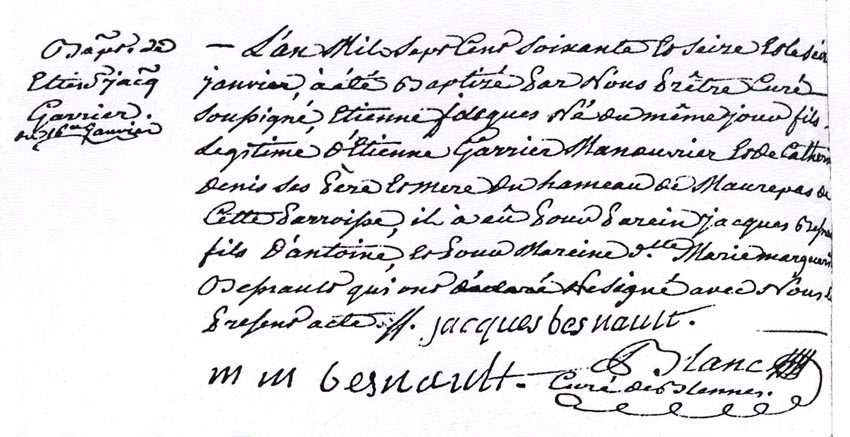 Bapt. de
Etien. jacq
Garrier.
du 16me janvier
— L'an Mil Sept Cent Soixante et Seize et le sei
janvier, à été Baptizé Par Nous Prêtre Curé
Soussigné, Etienne jacques Né du même jour fils
Legitime d'Etienne Garrier Manouvrier et de Catherin
denis ses Père et mere du hameau de Maurepas de
Cette Parroisse, il à eû Pour Parein jacques Besnau
fils d'antoine et Pour Mareine d.lle Marie margueri
Besnault qui ont signé avec Nous le
Present acte. jacques besnault.
m m besnault. Blanc
Curé de